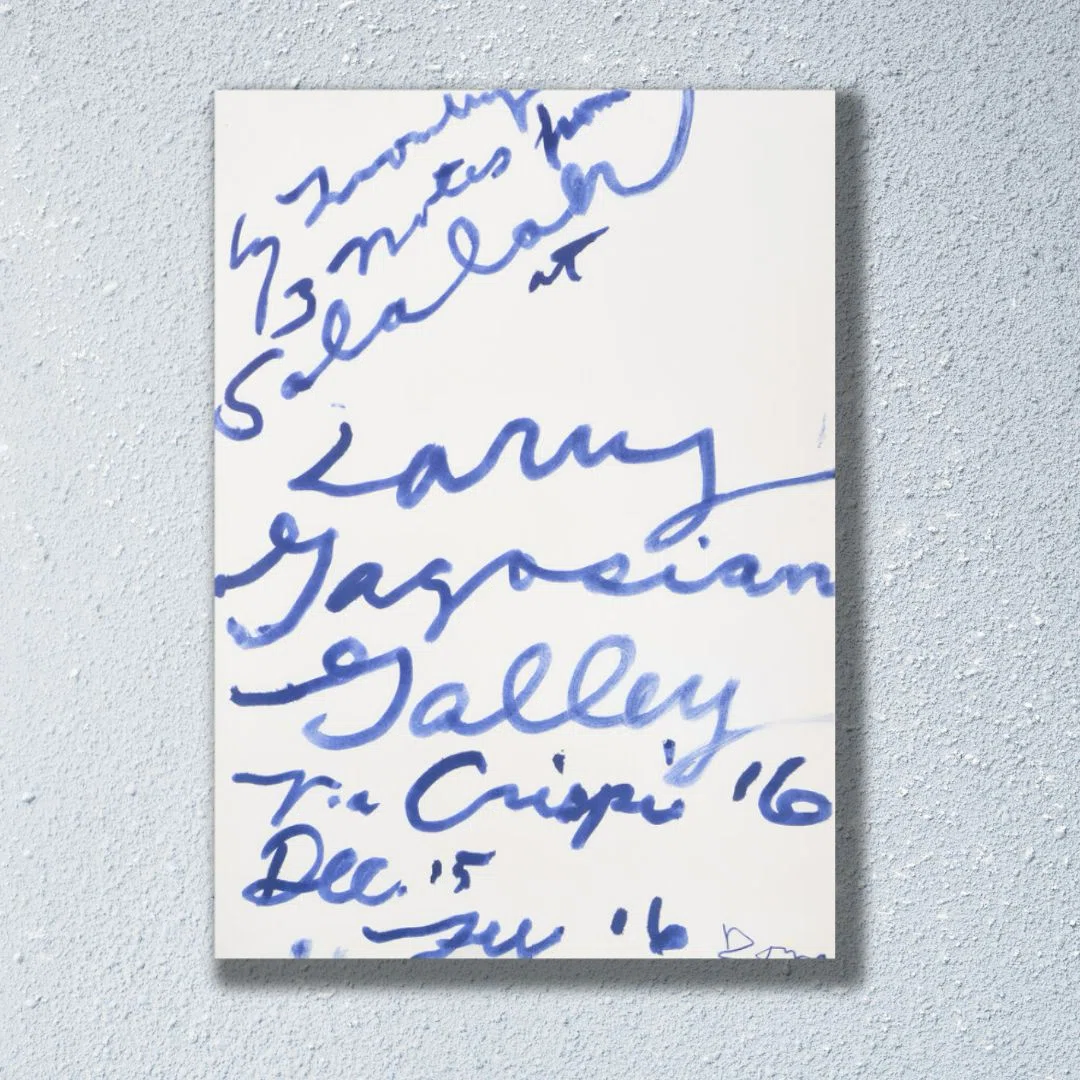 Twombly
3 notes from
Salalah
at
Larry
Gagosian
Gallery
Via Crispi '16
Dec. '15
'16